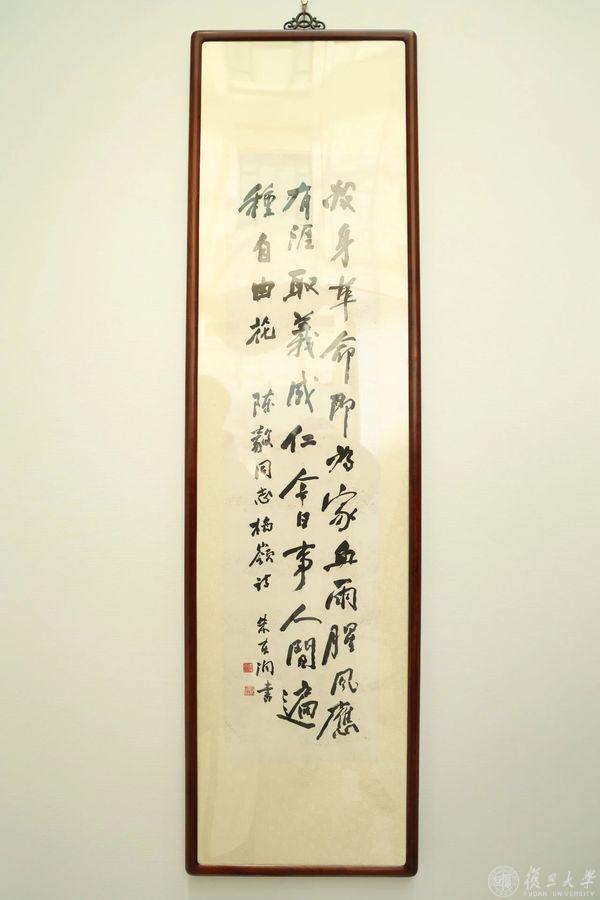 投身革命即为家血雨腥风應
有涯取義成仁今日事人間遍
種自由花 陈毅同志梅嶺诗 朱东润书
復旦大學
FUDAN UNIVERSITY